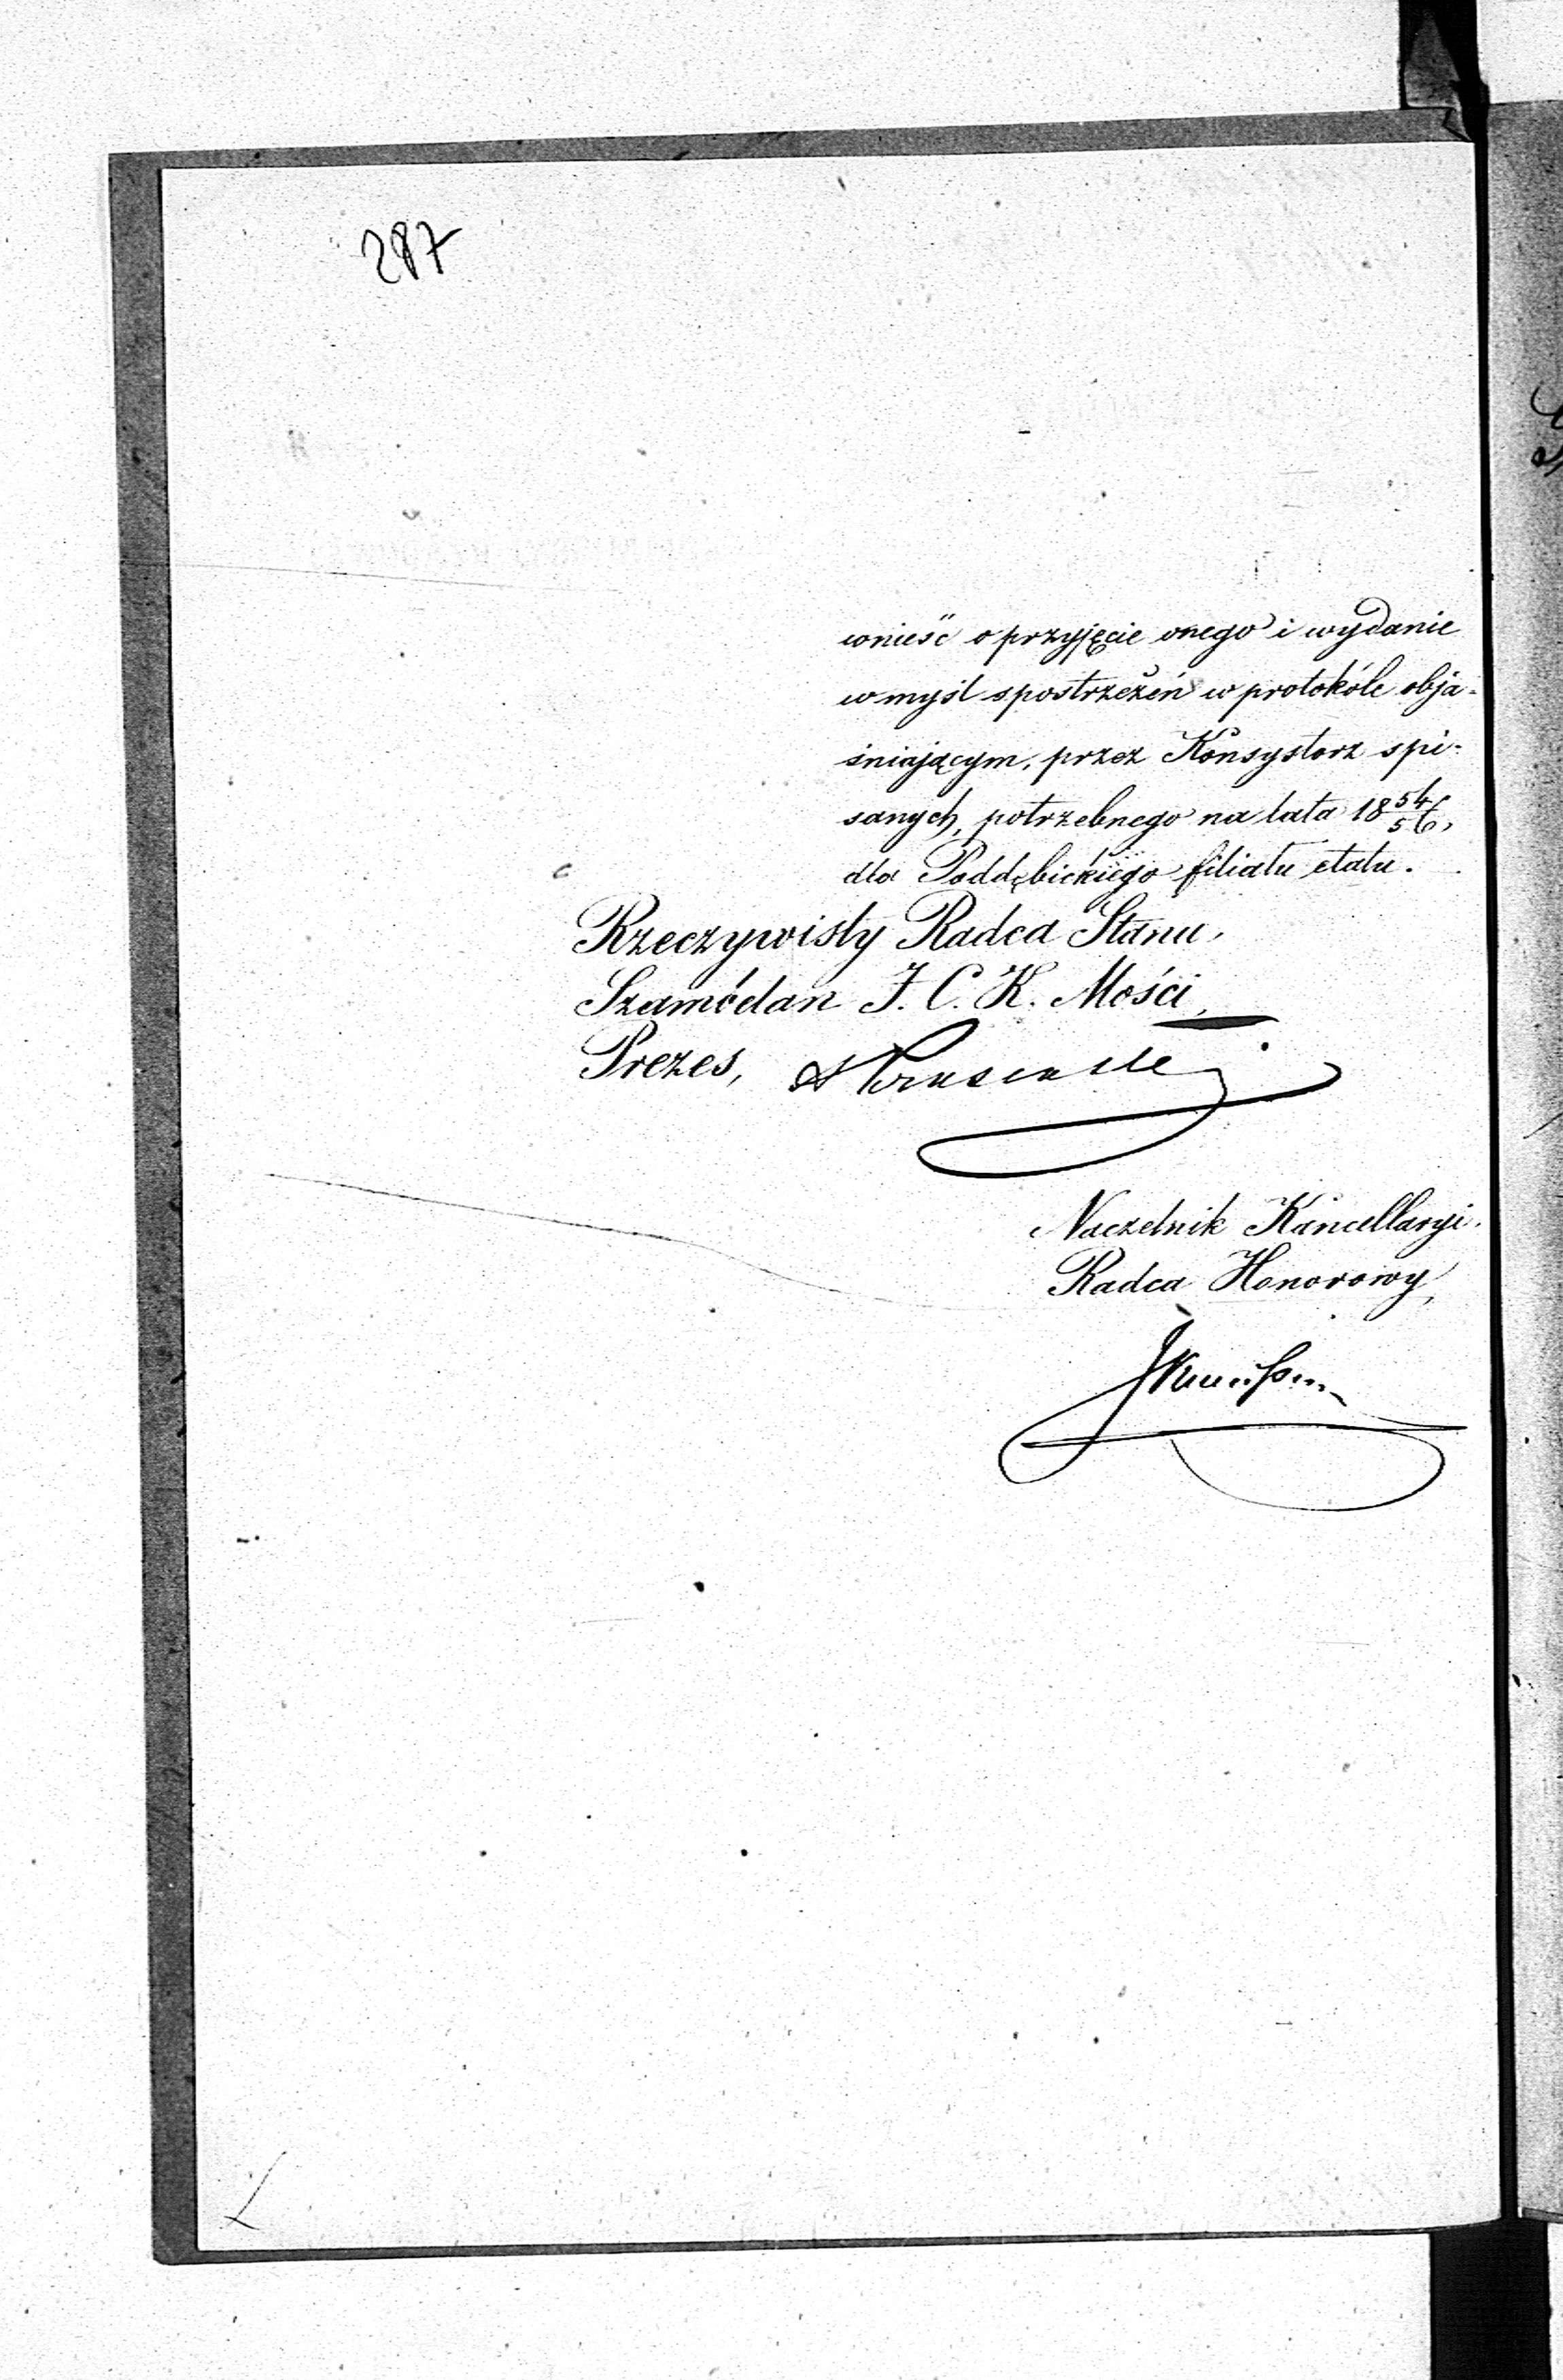 287
wnieść o przyjęcie onego i wydanie
w myśl spostrzeżeń w protokóle obja-
śniającym, przez Konsystorz spi-
sanych, potrzebnego na lata 18 54/56,
dla Poddębickiego filiału etatu.
Rzeczywisty Radca Stanu,
Szambelan J. C. K. Mości,
Prezes,
Naczelnik Kancellaryi.
Radca Honorowy,